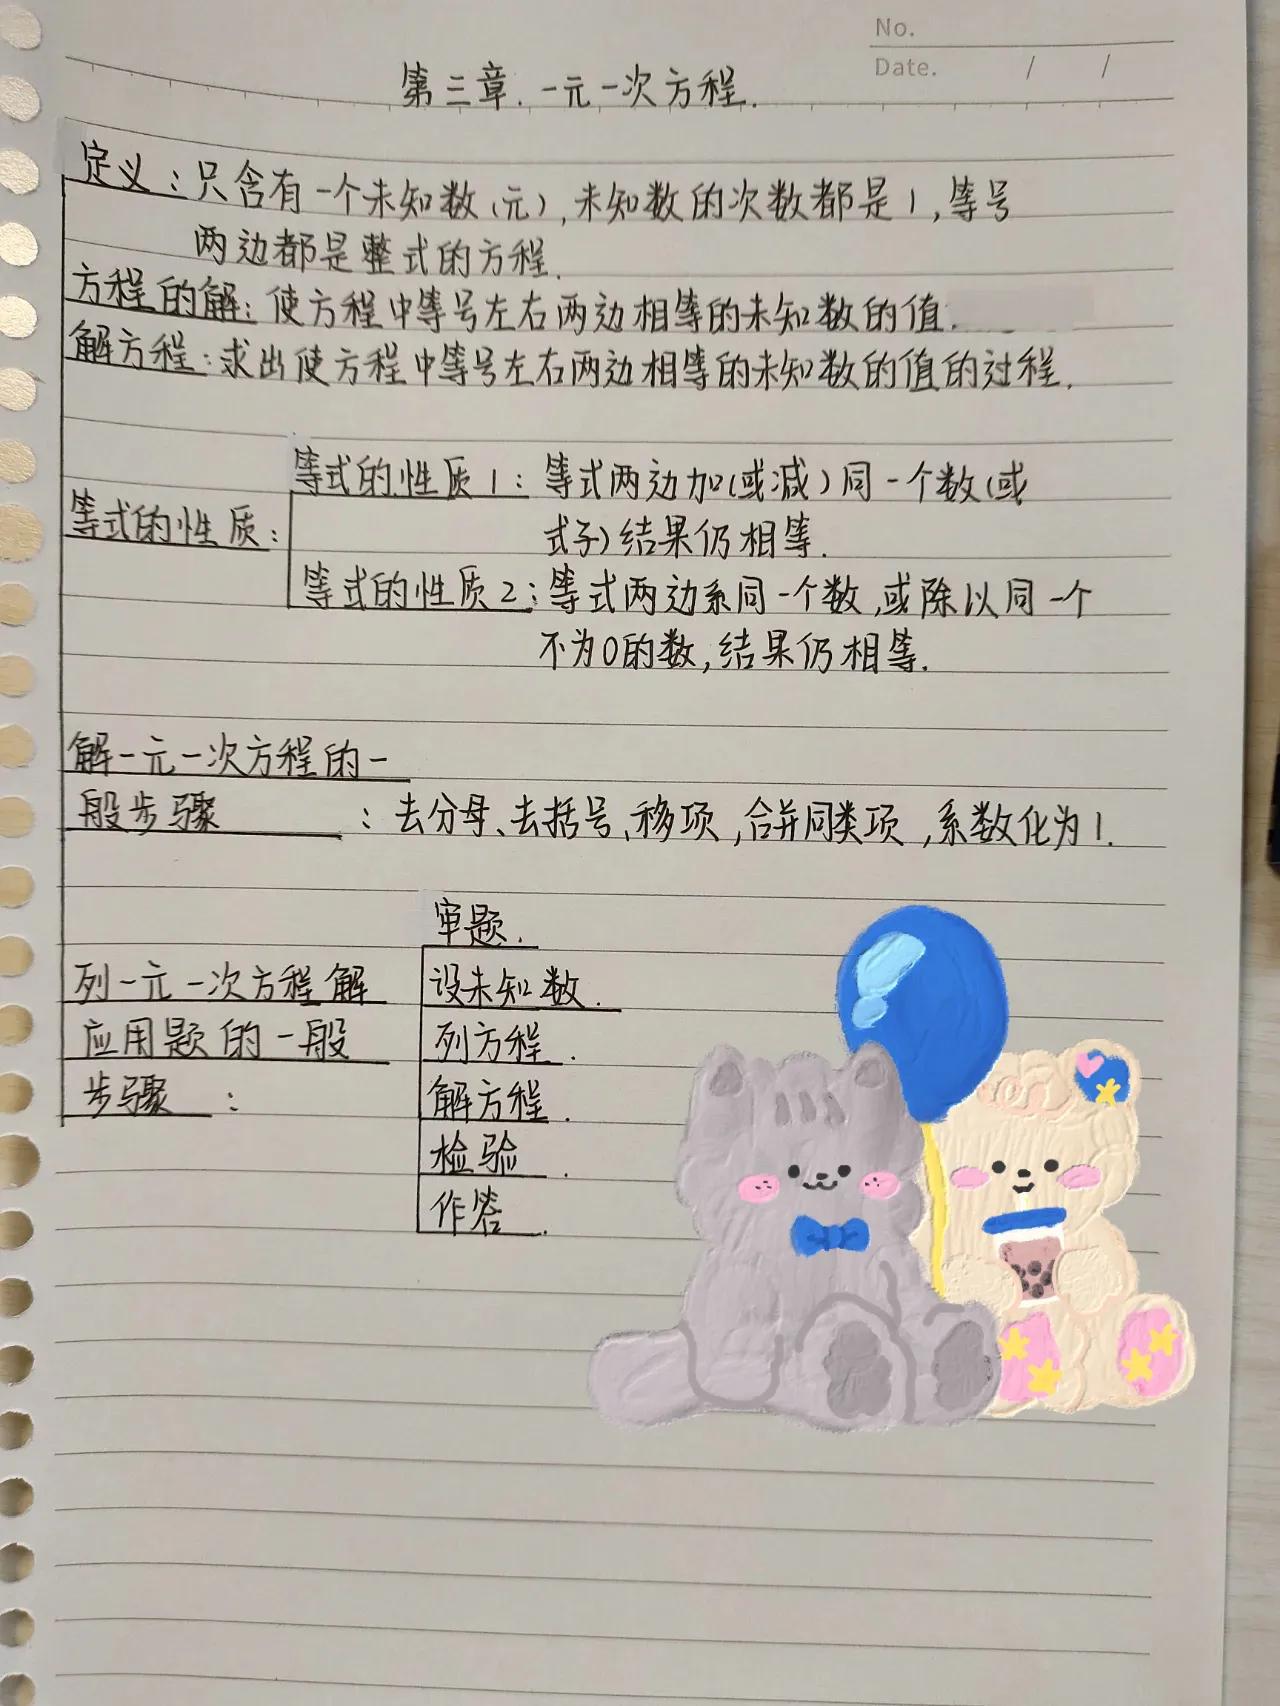 No.
Date. / /
第三章.一元一次方程.
定义:只含有一个未知数(元),未知数的次数都是1,等号
两边都是整式的方程.
方程的解:使方程中等号左右两边相等的未知数的值.
解方程:求出使方程中等号左右两边相等的未知数的值的过程.
等式的性质:
等式的性质1:等式两边加(或减)同一个数(或
式子)结果仍相等.
等式的性质2:等式两边乘同一个数,或除以同一个
不为0的数,结果仍相等.
解一元一次方程的一
般步骤:去分母、去括号、移项,合并同类项,系数化为1.
列一元一次方程解
应用题的一般
步骤:
审题.
设未知数.
列方程.
解方程.
检验.
作答.